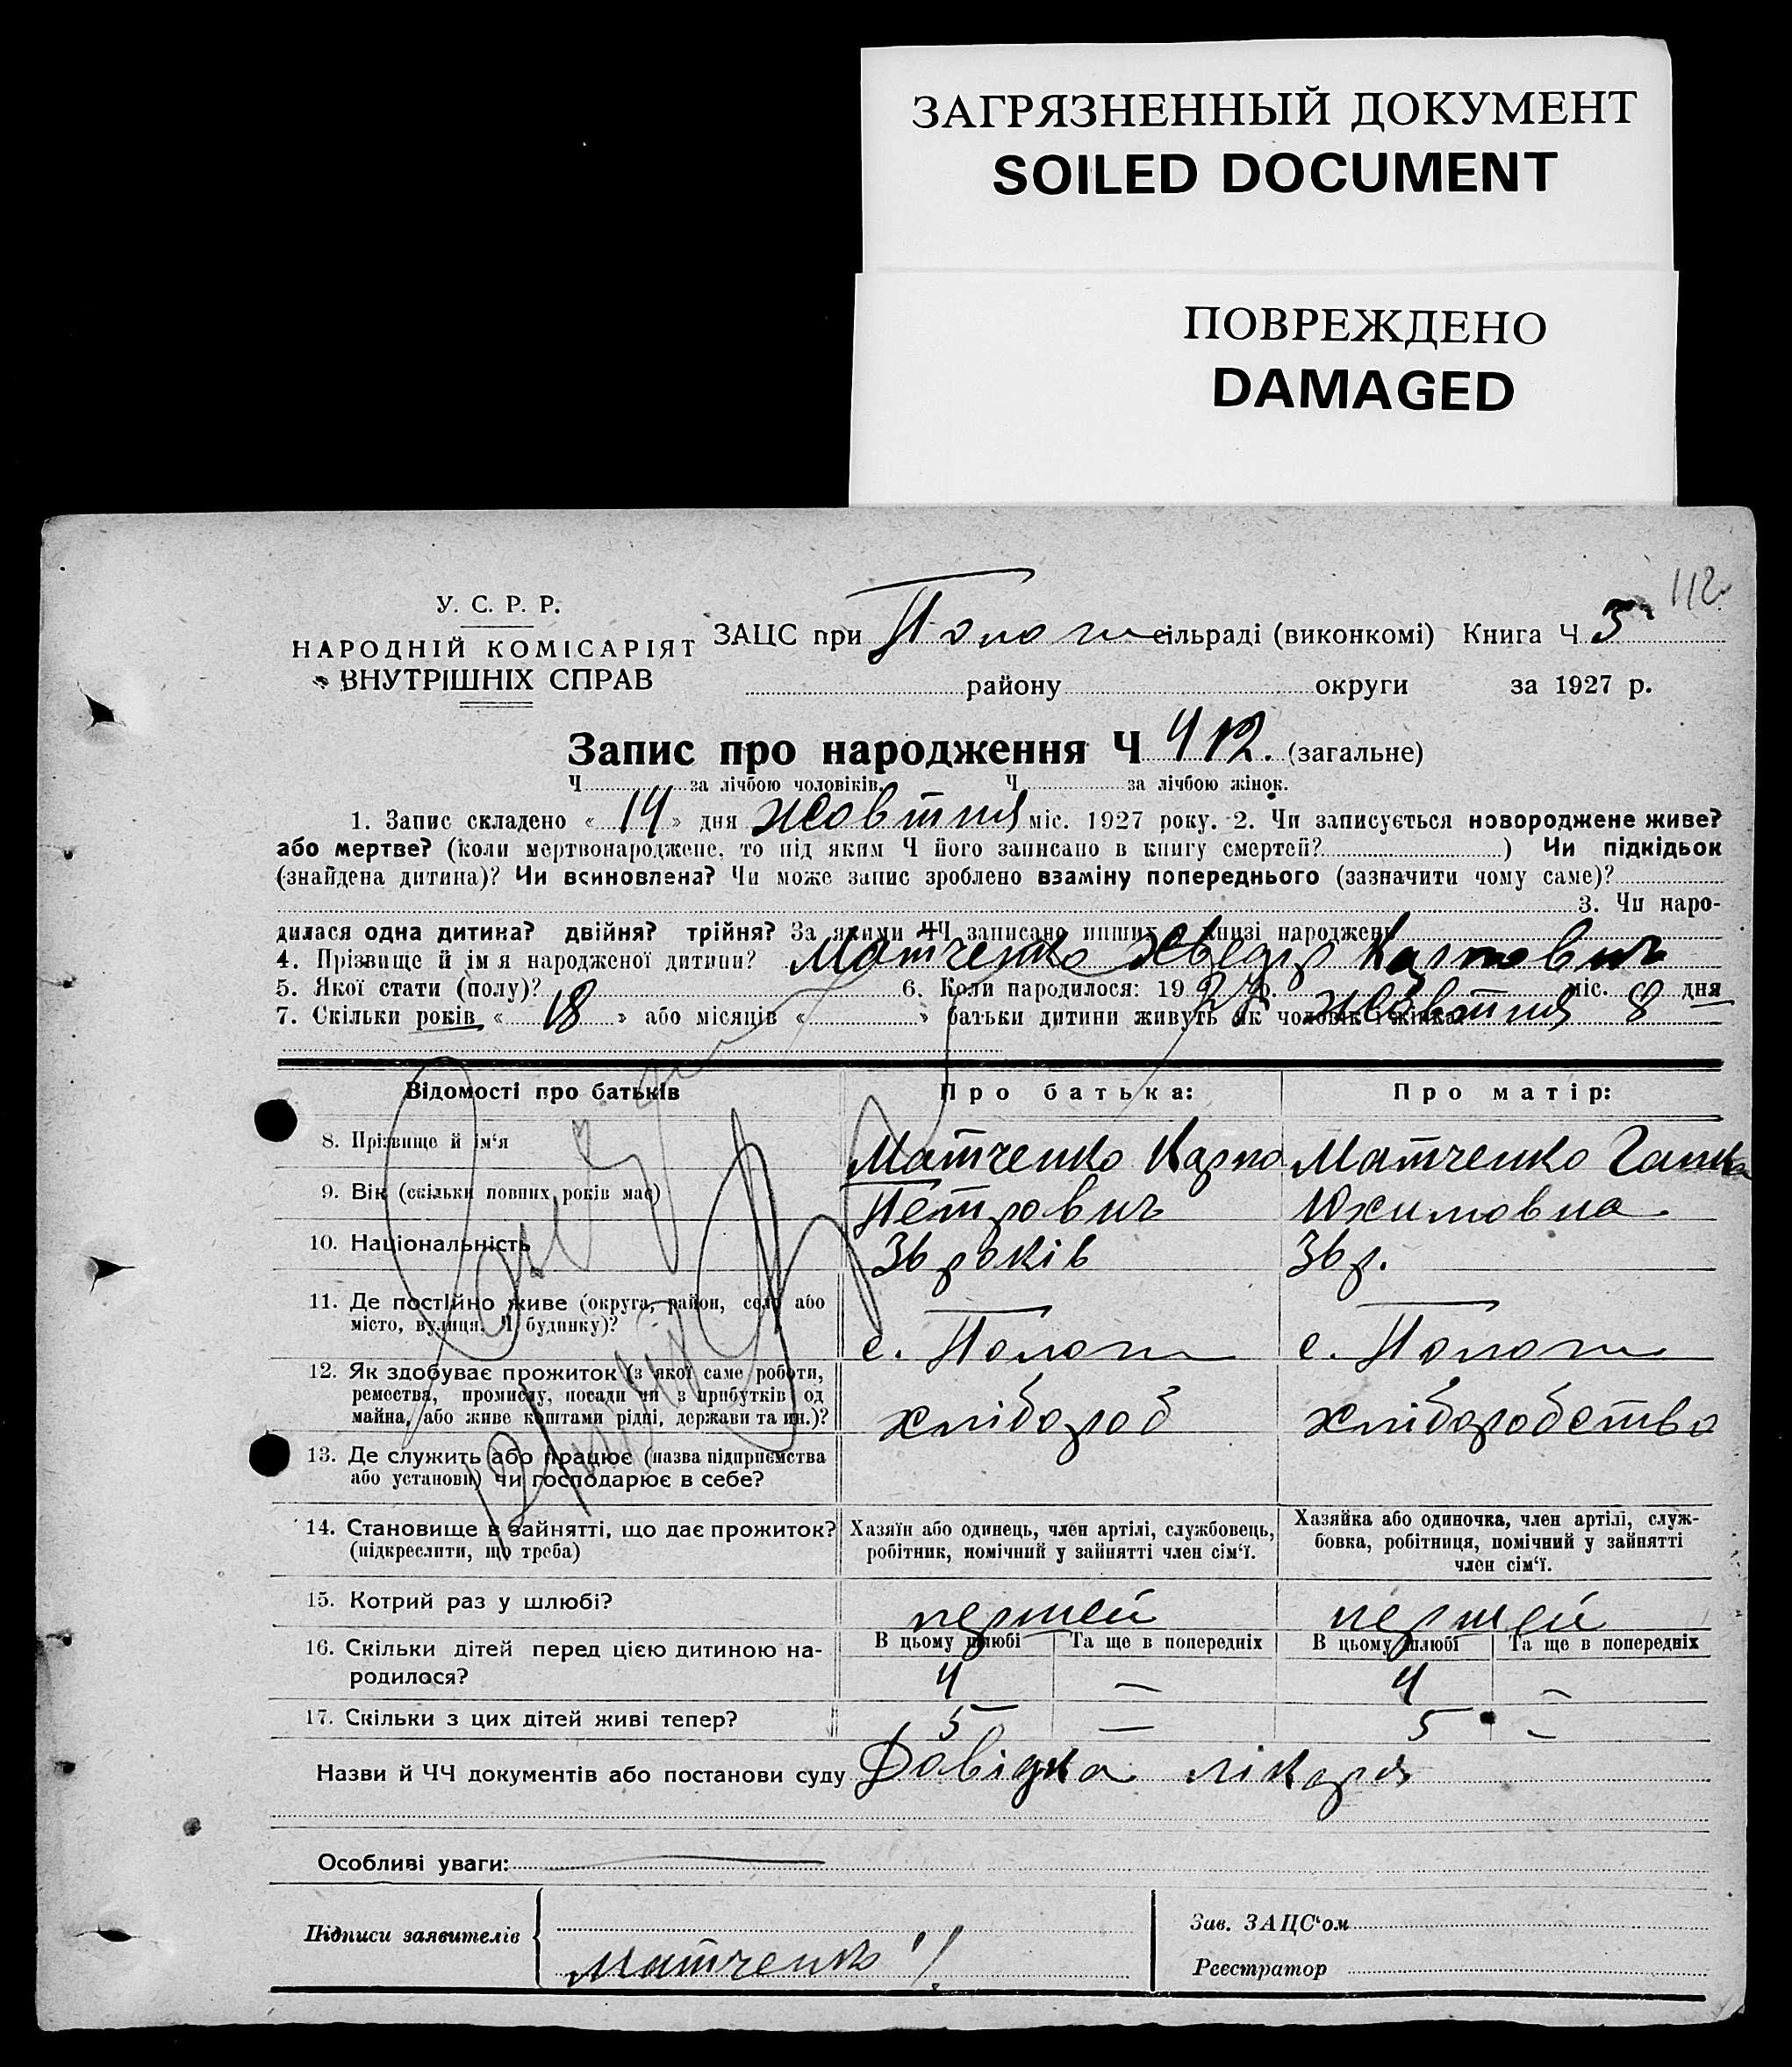 ЗАГРЯЗНЕННЫЙ ДОКУМЕНТ
SOILED DOCUMENT
ПОВРЕЖДЕНО
DAMAGED
112
У. С. Р. Р.
НАРОДНІЙ КОМІСАРІЯТ
ВНУТРІШНІХ СПРАВ
ЗАЦС при Пологи сільраді (виконкомі) Книга Ч 5
району округи за 1927 р.
Запис про народження Ч 412. (загальне)
Ч за лічбою чоловіків. Ч за лічбою жінок.
1. Запис складено « 14 » дня жовтня міс. 1927 року. 2. Чи записується новороджене живе?
або мертве? (коли мертвонароджене, то під яким Ч його записано в книгу смертей? ) Чи підкідьок
(знайдена дитина)? Чи всиновлена? Чи може запис зроблено взаміну попереднього (зазначити чому саме)?
3. Чи наро-
дилася одна дитина? двійня? трійня? За якими ЧЧ записано инших в книзі народжень
4. Прізвище й ім я народженої дитини? Матченко Хведір Карпович
5. Якої стати (полу)? 6. Коли народилося: 1927 р. жовтня міс. 8 дня
7. Скільки років « 18 » або місяців « » батьки дитини живуть як чоловік і жінка?
Відомості про батьків Про батька: Про матір:
8. Прізвище й ім‘я Матченко Карпо Матченко Ганна
9. Вік (скільки повних років має) Петрович Юхимовна
10. Національність 36 років 36 р.
11. Де постійно живе (округа, район, село або
місто, вулиця, Ч будинку)? с. Пологи с. Пологи
12. Як здобуває прожиток (з якої саме роботи,
ремества, промислу, посади чи з прибутків од
майна, або живе коштами рідні, держави та ин.)? хлібороб хліборобство
13. Де служить або працює (назва підприємства
або установи) чи господарює в себе?
14. Становище в зайнятті, що дає прожиток?
(підкреслити, що треба)
Хазяїн або одинець, член артілі, службовець,
робітник, помічний у зайнятті член сім‘ї.
Хазяйка або одиночка, член артілі, служ-
бовка, робітниця, помічний у зайнятті
член сім‘ї.
15. Котрий раз у шлюбі? першей першей
В цьому шлюбі Та ще в попередніх В цьому шлюбі Та ще в попередніх
16. Скільки дітей перед цією дитиною на-
родилося? 4 — 4 —
17. Скільки з цих дітей живі тепер? 5 — 5 —
Назви й ЧЧ документів або постанови суду Довідка лікаря
Особливі уваги:
Підписи заявителів
Матченко
Зав. ЗАЦС‘ом
Реєстратор